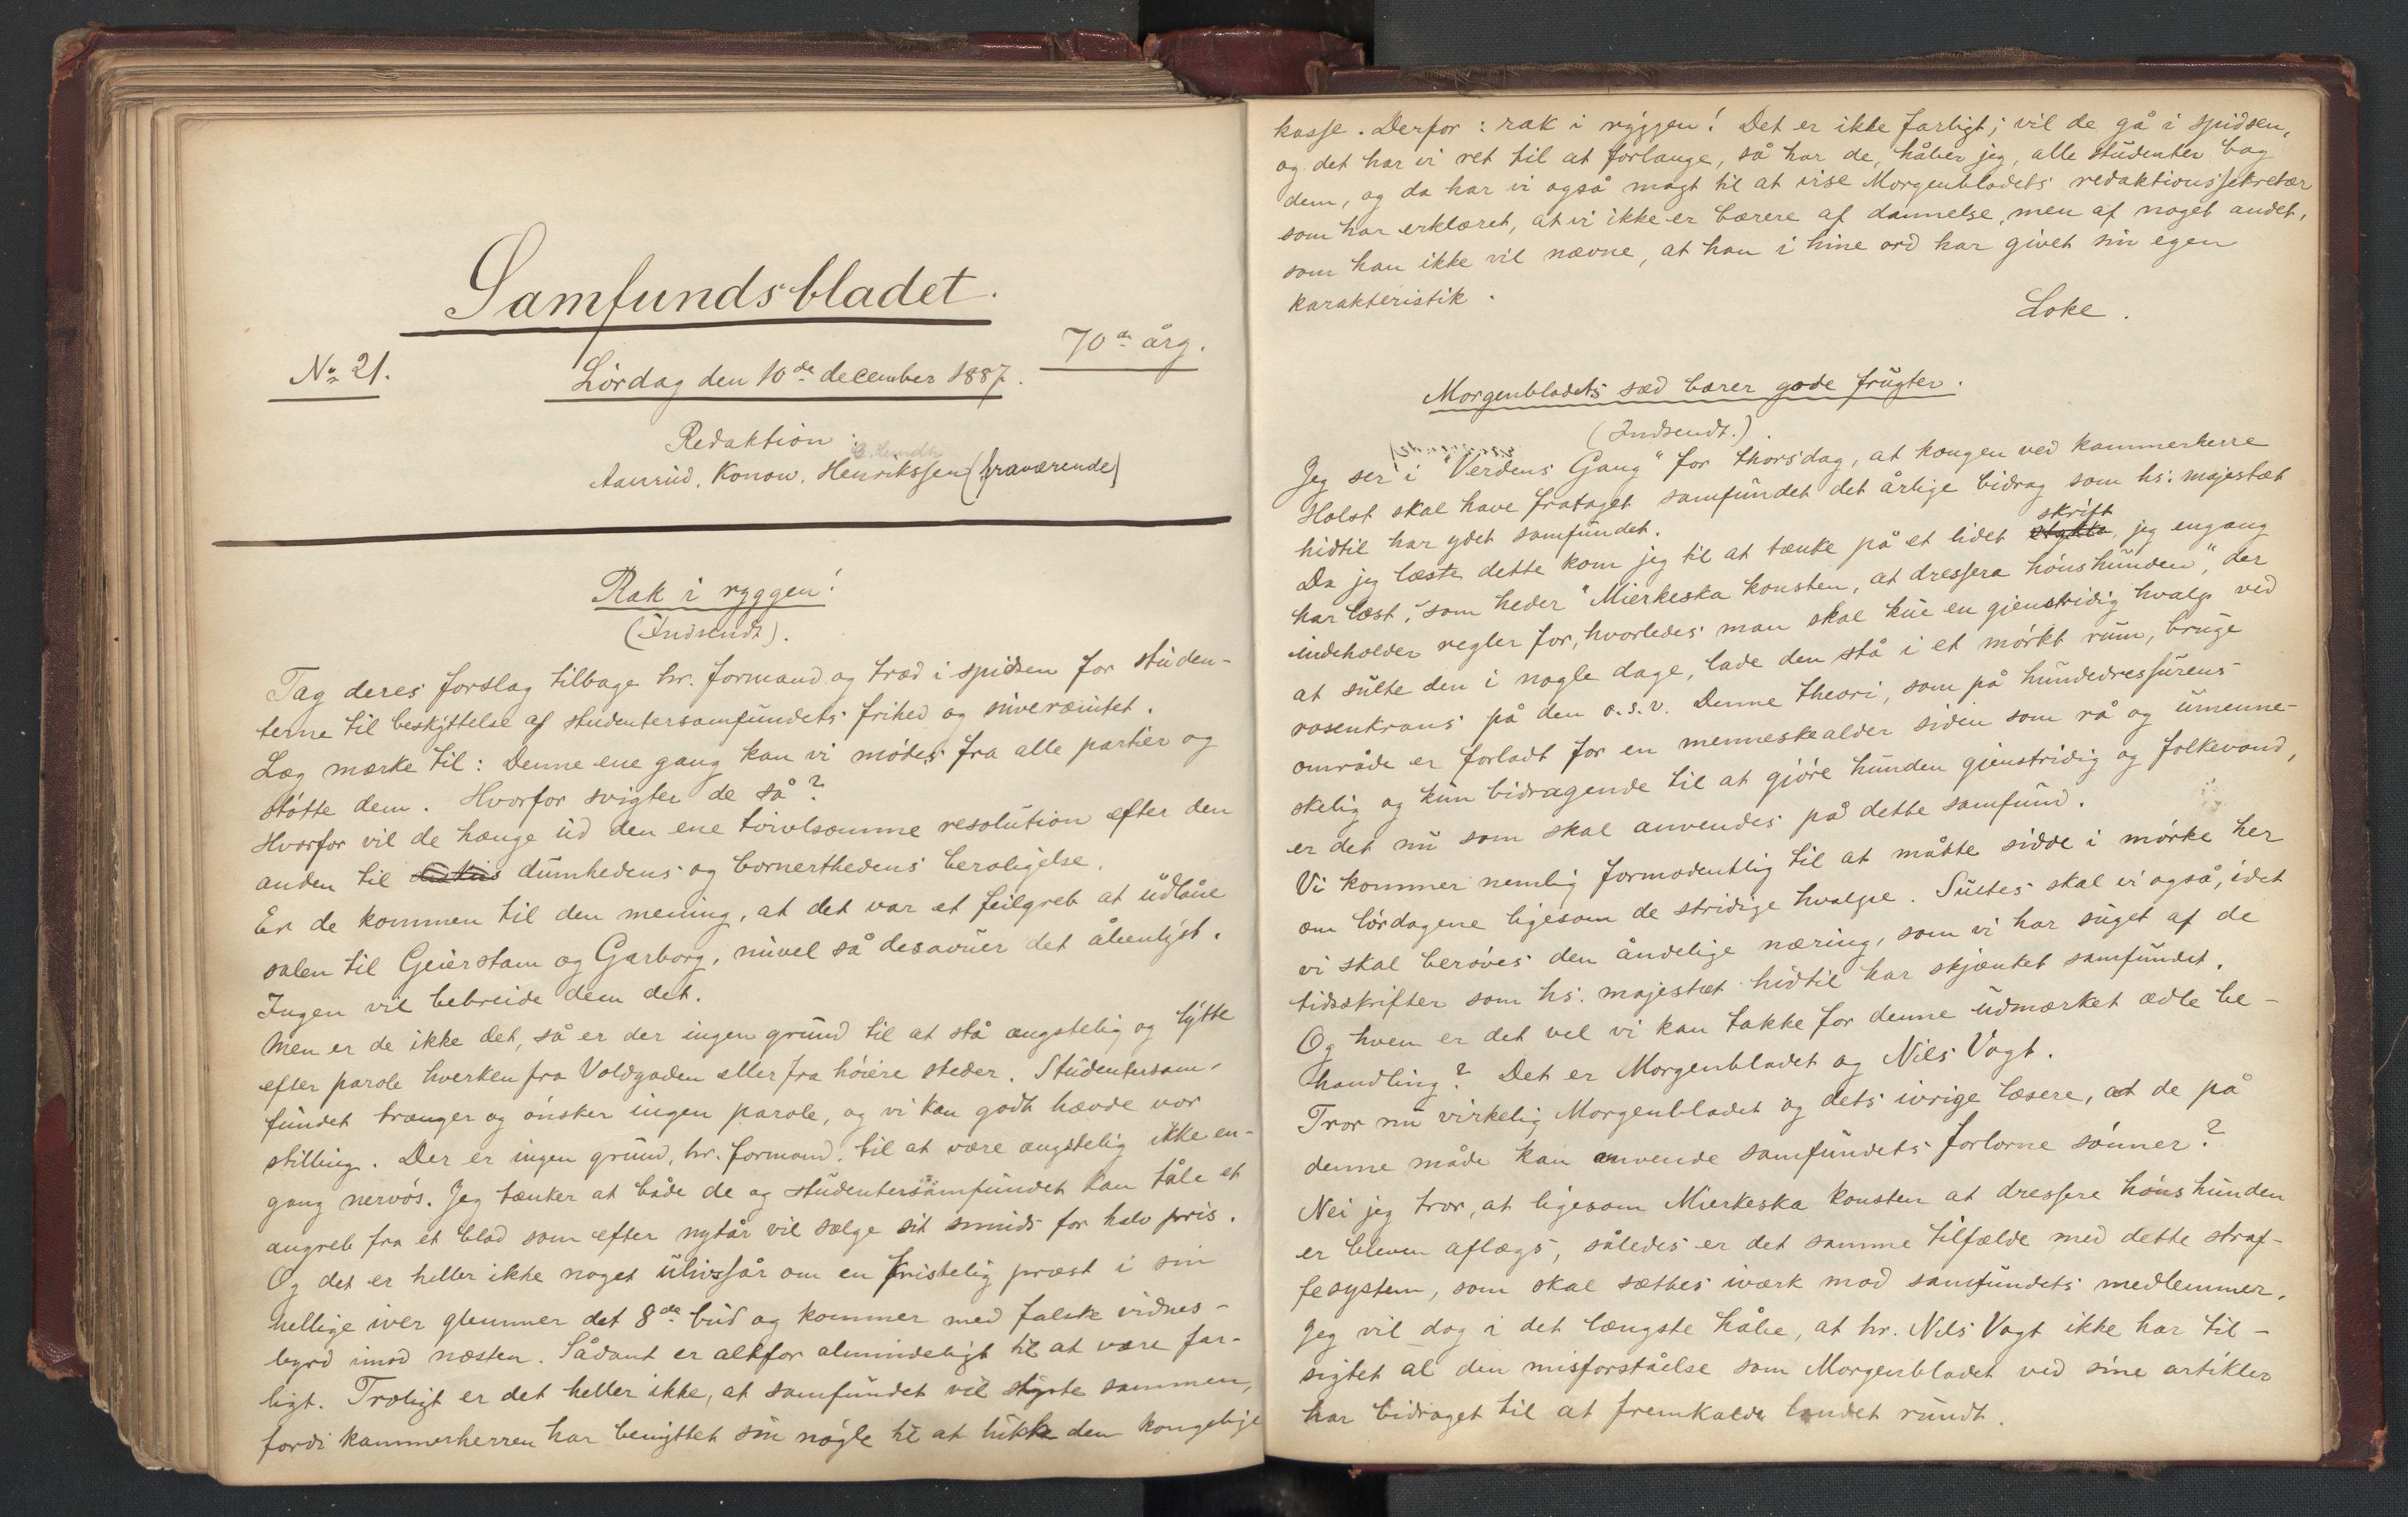 Samfundsbladet.
No 21.
Lördag den 10de december 1887.
70de årg.
Redaktion:
Aanrud, Konow, Henrikssen (fraværende)
Rak i ryggen!
(Indsendt).
Tag deres forslag tilbage hr. formand og træd i spidsen for studen-
terne til beskyttelse af studentersamfundets frihed og suverænitet.
Læg mærke til: Denne ene gang kan vi mödes fra alle partier og
stötte dem. Hvorfor svigter de så?
Hvorfor vil de hænge ud den ene tvivlsomme resolution efter den
anden til dumhedens og bornerthedens beroligelse.
Er de kommen til den mening, at det var et feilgreb at udlåne
salen til Geierstam og Garborg, nuvel så desavuer det åbenlyst.
Ingen vil bebreide dem det.
Men er de ikke det, så er der ingen grund til at stå ængstelig og lytte
efter parole hverken fra Voldgaden eller fra höiere steder. Studentersam-
fundet trænger og önsker ingen parole, og vi kan godt hævde vor
stilling. Der er ingen grund, hr. formand, til at være ængstelig ikke en-
gang nervös. Jeg tænker at både de og studentersamfundet kan tåle et
angreb fra et blad som efter nytår vil sælge sit smuds for halv pris.
Og det er heller ikke noget ulivssår om en kristelig præst i sin
hellige iver glemmer det 8de bud og kommer med falske vidnes-
byrd imod næsten. Sådant er altfor almindeligt til at være far-
ligt. Troligt er det heller ikke, at samfundet vil styrte sammen,
fordi kammerherren har benyttet sin nögle til at lukke den kongelige
kasse. Derfor: rak i ryggen! Det er ikke farligt; vil de gå i spidsen,
og det har vi ret til at forlange, så har de, håber jeg, alle studenter bag
dem, og da har vi også magt til at vise Morgenbladets redaktionssekretær
som har erklæret, at vi ikke er bærere af dannelse, men af noget andet,
som han ikke vil nævne, at han i hine ord har givet sin egen
karakteristik.
Loke.
Morgenbladets sæd bærer gode frugter.
(Indsendt.).
Jeg ser i "Verdens Gang" for thorsdag, at kongen ved kammerherre
Holst skal have frataget samfundet det årlige bidrag som hs. majestæt
hidtil har ydet samfundet.
Da jeg læste dette kom jeg til at tænke på et lidet stykke skrift, jeg engang
har læst, som heder "Mierkeska konsten, at dressera hönshunden", der
indeholder regler for, hvorledes man skal kue en gjenstridig hvalp ved
at sulte den i nogle dage, lade den stå i et mörkt rum, bruge
rosenkrans på den o.s.v. Denne theori, som på hundedressurens
område er forladt for en menneskealder siden som rå og umenne-
skelig og kun bidragende til at gjöre hunden gjenstridig og folkevond,
er det nu som skal anvendes på dette samfund.
Vi kommer nemlig formodentlig til at måtte sidde i mörke her
om lördagene ligesom de stridige hvalpe. Sultes skal vi også, idet
vi skal beröves den åndelige næring, som vi har suget af de
tidsskrifter som hs. majestæt hidtil har skjænket samfundet.
Og hvem er det vel vi kan takke for denne udmærket ædle be-
handling? Det er Morgenbladet og Nils Vogt.
Tror nu virkelig Morgenbladet og dets ivrige læsere, at de på
denne måde kan omvende samfundets forlorne sönner?
Nei jeg tror, at ligesom Mierkeska konsten at dressere hönshunden
er bleven aflægs, således er det samme tilfælde med dette straf-
fesystem, som skal sættes iværk mod samfundets medlemmer.
Jeg vil dog i det længste håbe, at hr. Nils Vogt ikke har til-
sigtet al den misforståelse som Morgenbladet ved sine artikler
har bidraget til at fremkalde landet rundt.